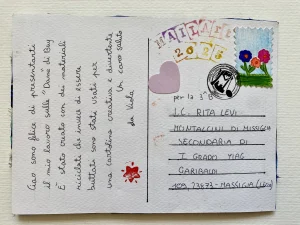 Ciao sono felice di presentarti
il mio lavoro sulla "Dame" di Bay
È stato creato con dei materiali
riciclati che invece di essere
buttati sono stati usati per
una cartolina creativa e divertente
Un caro saluto
da Viola
MAIL ART
2026
per la 3°B
I.C. RITA LEVI
MONTALCINI DI MISSAGLIA
SECONDARIA DI
I GRADO
GARIBALDI
23873 - MASSIGLIA (Lecco)